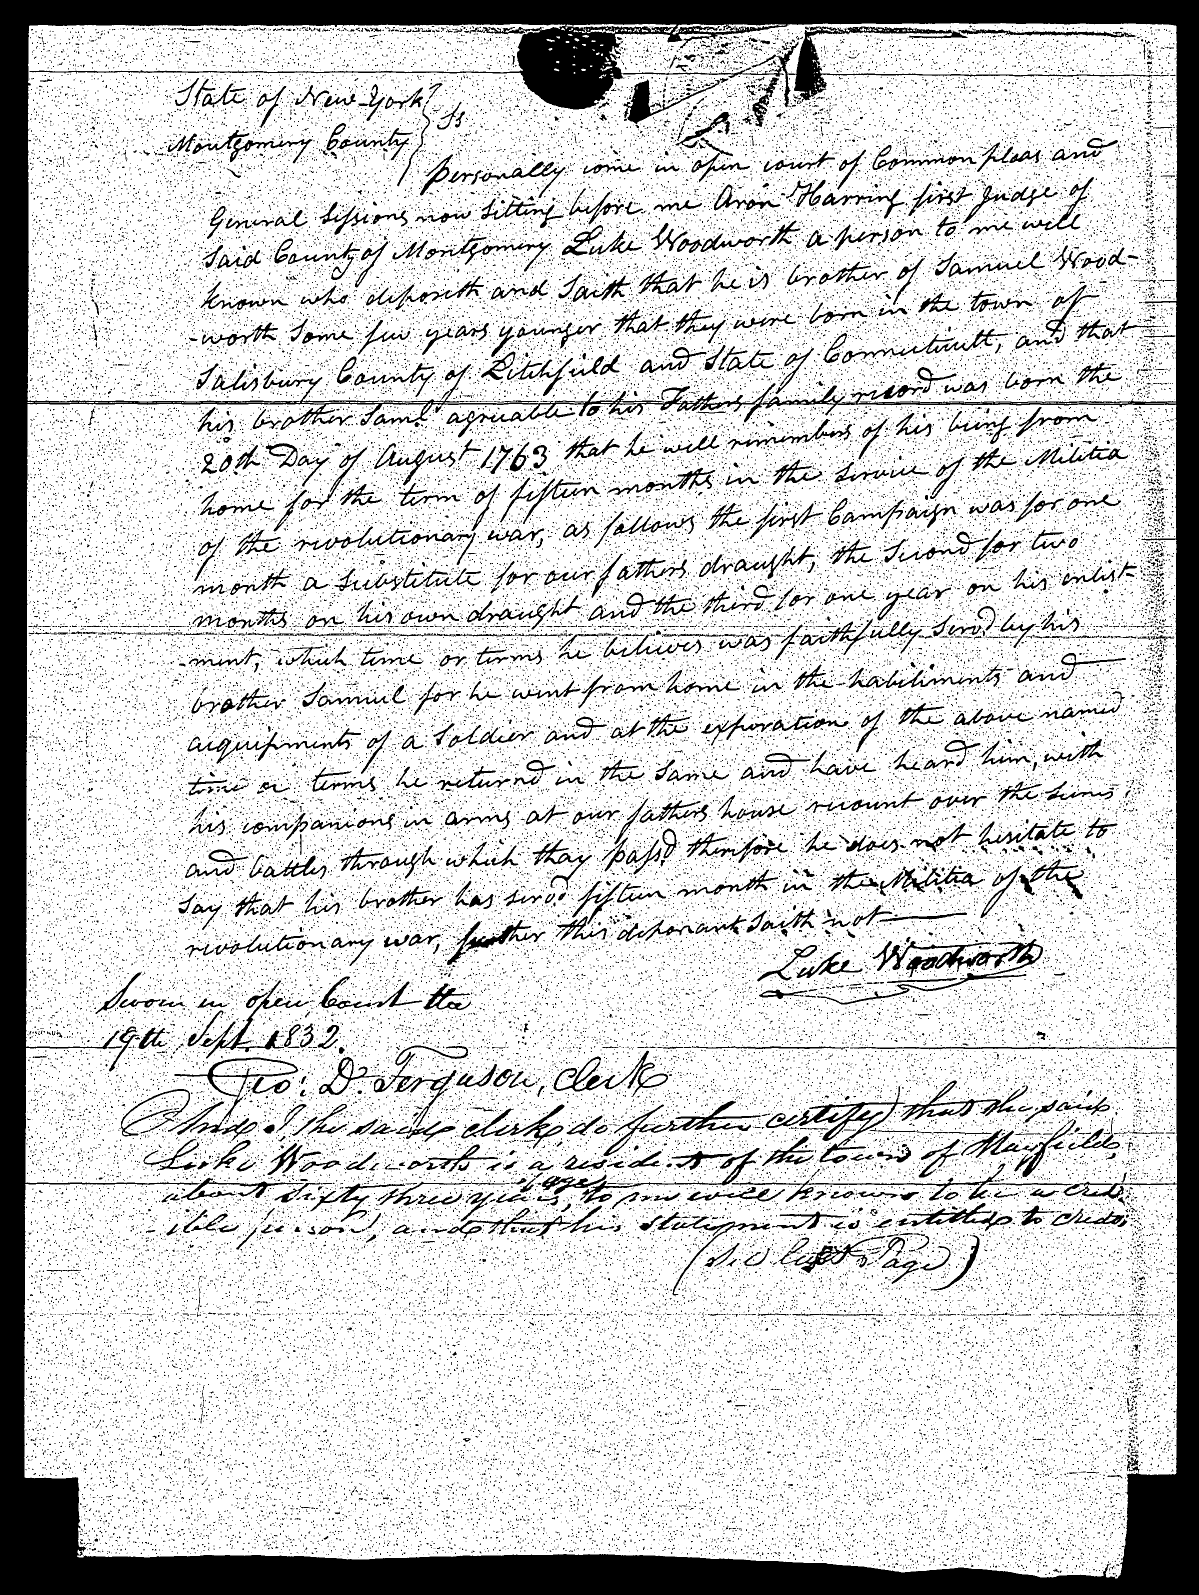 State of New-York }
Montgomery County } Ss
Personally come in open court of Common pleas and
General Sessions now Sitting before me Aron Harring first Judge of
Said County of Montgomery Luke Woodworth a person to me well
known who deposeth and Saith that he is brother of Samuel Wood-
-worth Some few years younger that they were born in the town of
Salisbury County of Litchfield and State of Connecticutt, and that
his brother Saml. agreeable to his Fathers family record was born the
20th Day of August 1763 that he well remembers of his being from
home for the term of fifteen months in the Service of the Militia
of the revolutionary war, as follows the first Campaign was for one
month a Substitute for our fathers draught, the Second for two
months on his own draught and the third for one year on his enlist-
-ment, which time or terms he believes was faithfully Servd by his
brother Samuel for he went from home in the habiliments and
acquipments of a Soldier and at the expiration of the above named
time or terms he returnd in the Same and have heard him, with
his companions in arms at our fathers house recount over the Sceins,
and battles through which thay passd therefore he does not hesitate to
Say that his brother has servd. fifteen month in the Militia of the
revolutionary war, further this deponant Saith not
Luke Woodworth
Sworn in open Court the
19th Sept. 1832.
Geo: D. Ferguson, Clerk
And I the said clerk do further certify that the said
Luke Woodworth is a resident of the town of Mayfield,
of age
about Sixty three years, to me well known to be a cred-
-ible person, and that his statement is entitled to credit
(See last Page)